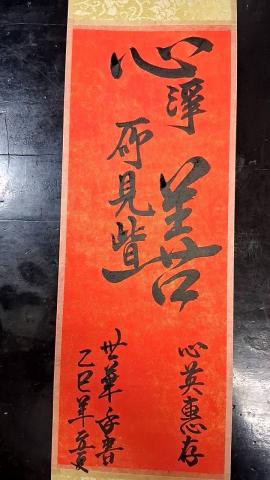 心淨
所見皆
善
心英惠存
世華手書
乙巳年立夏